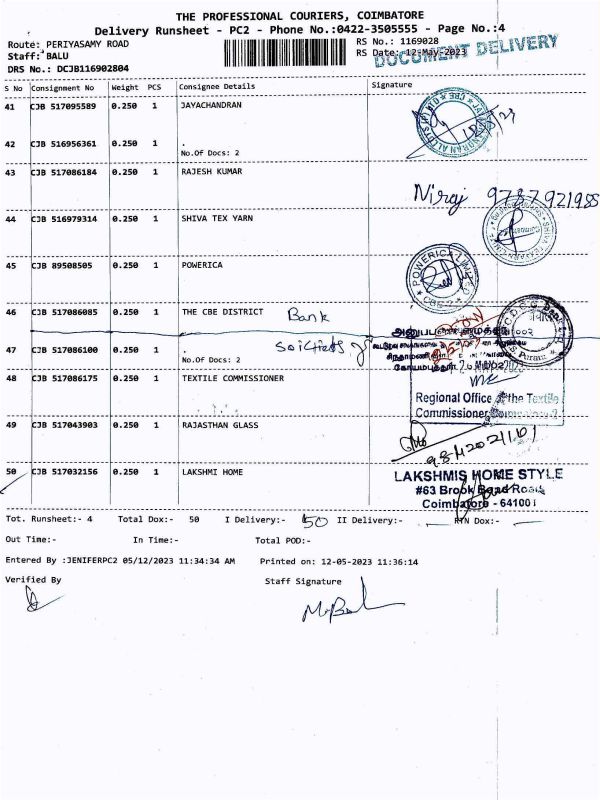 THE PROFESSIONAL COURIERS, COIMBATORE
Delivery Runsheet - PC2 - Phone No.:0422-3505555 - Page No.:4
Route: PERIYASAMY ROAD
RS No.: 1169028
Staff: BALU
RS Date: 12-May-2023
DOCUMENT DELIVERY
DRS No.: DCJB116902804
S No Consignment No Weight PCS Consignee Details Signature
41 CJB 517095589 0.250 1 JAYACHANDRAN
42 CJB 516956361 0.250 1 .
No.Of Docs: 2
43 CJB 517086184 0.250 1 RAJESH KUMAR
Niraj 9787921985
44 CJB 516979314 0.250 1 SHIVA TEX YARN
45 CJB 89508505 0.250 1 POWERICA
POWERICA LIMITED
46 CJB 517086085 0.250 1 THE CBE DISTRICT Bank
47 CJB 517086100 0.250 1 .
No.Of Docs: 2
48 CJB 517086175 0.250 1 TEXTILE COMMISSIONER
Regional Office of the Textile
Commissioner
49 CJB 517043903 0.250 1 RAJASTHAN GLASS
50 CJB 517032156 0.250 1 LAKSHMI HOME
LAKSHMIS HOME STYLE
#63 Brook Bond Road
Coimbatore - 641001
Tot. Runsheet:- 4 Total Dox:- 50 I Delivery:- 50 II Delivery:- RTN Dox:-
Out Time:- In Time:- Total POD:-
Entered By :JENIFERPC2 05/12/2023 11:34:34 AM Printed on: 12-05-2023 11:36:14
Verified By Staff Signature